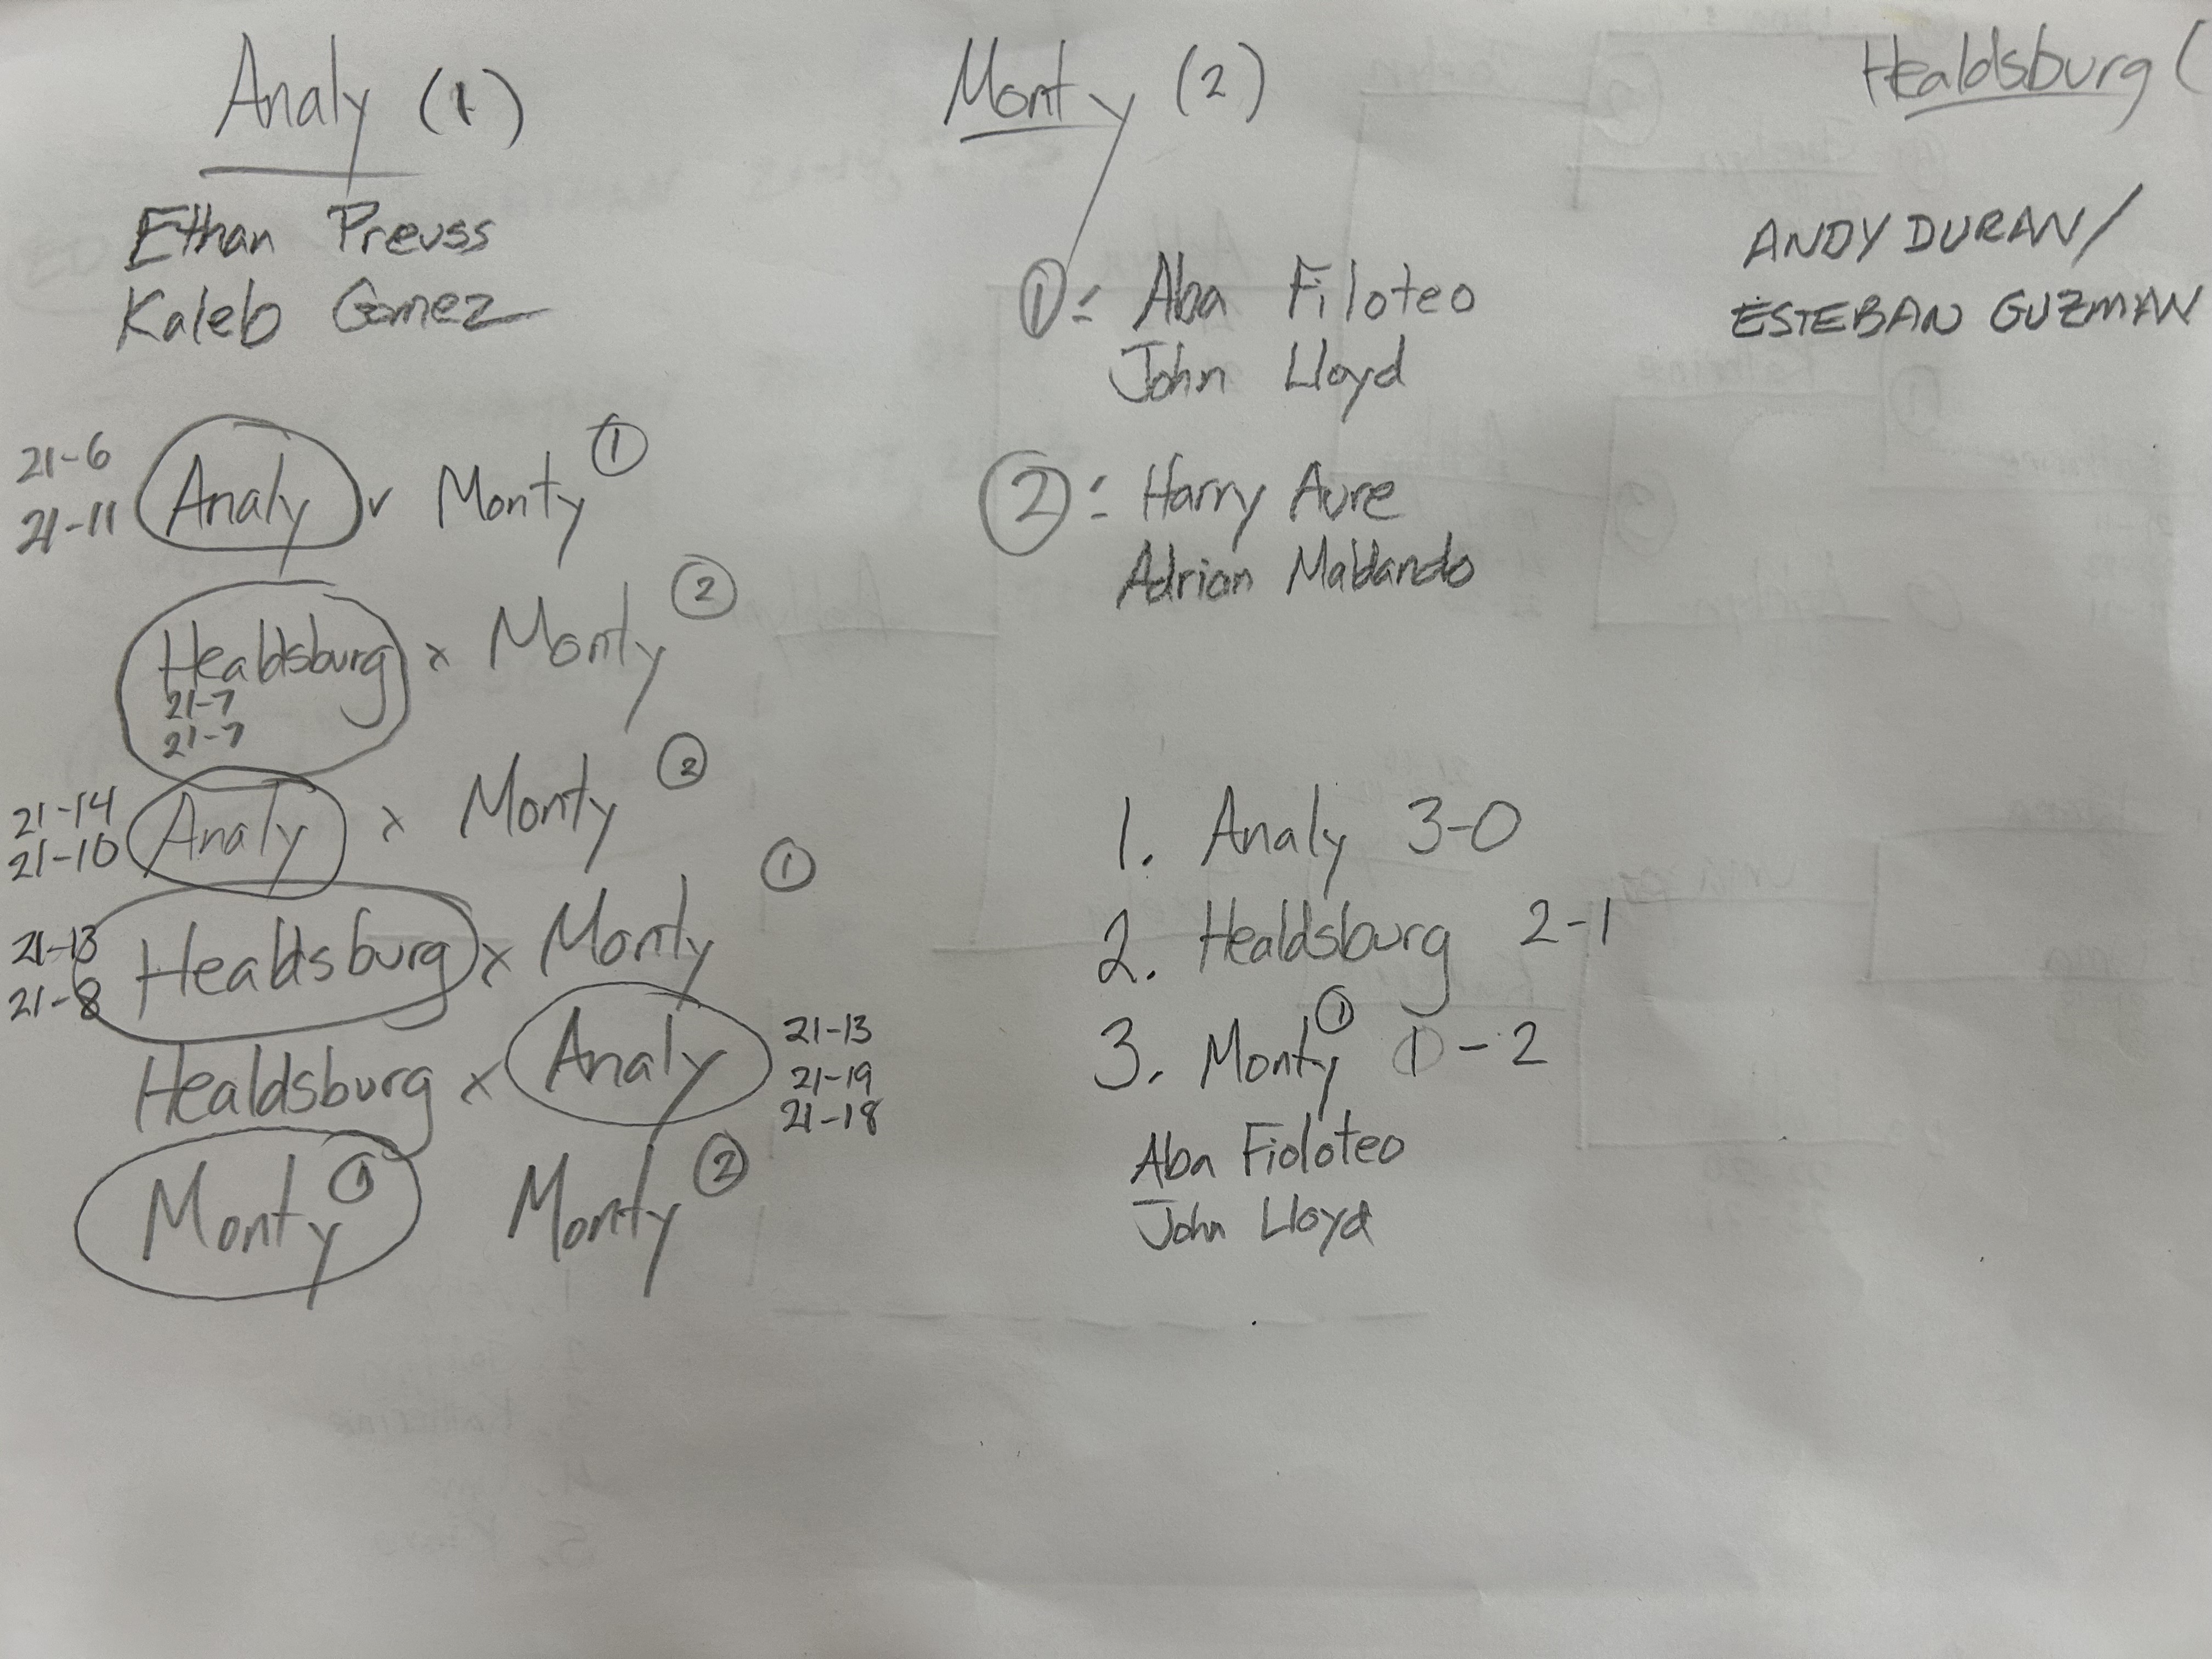 Analy (1)
Ethan Preuss
Kaleb Gomez
21-6
21-11
Analy v Monty ①
Healdsburg x Monty ②
21-7
21-7
21-14
21-10
Analy x Monty ②
21-13
21-8
Healdsburg x Monty ①
Healdsburg x Analy
21-13
21-19
21-18
Monty ① Monty ②
Monty (2)
①: Aba Filoteo
John Lloyd
②: Harry Aure
Adrian Maldando
1. Analy 3-0
2. Healdsburg 2-1
3. Monty ① 1-2
Aba Fioloteo
John Lloyd
Healdsburg (
ANDY DURAN/
ESTEBAN GUZMAN